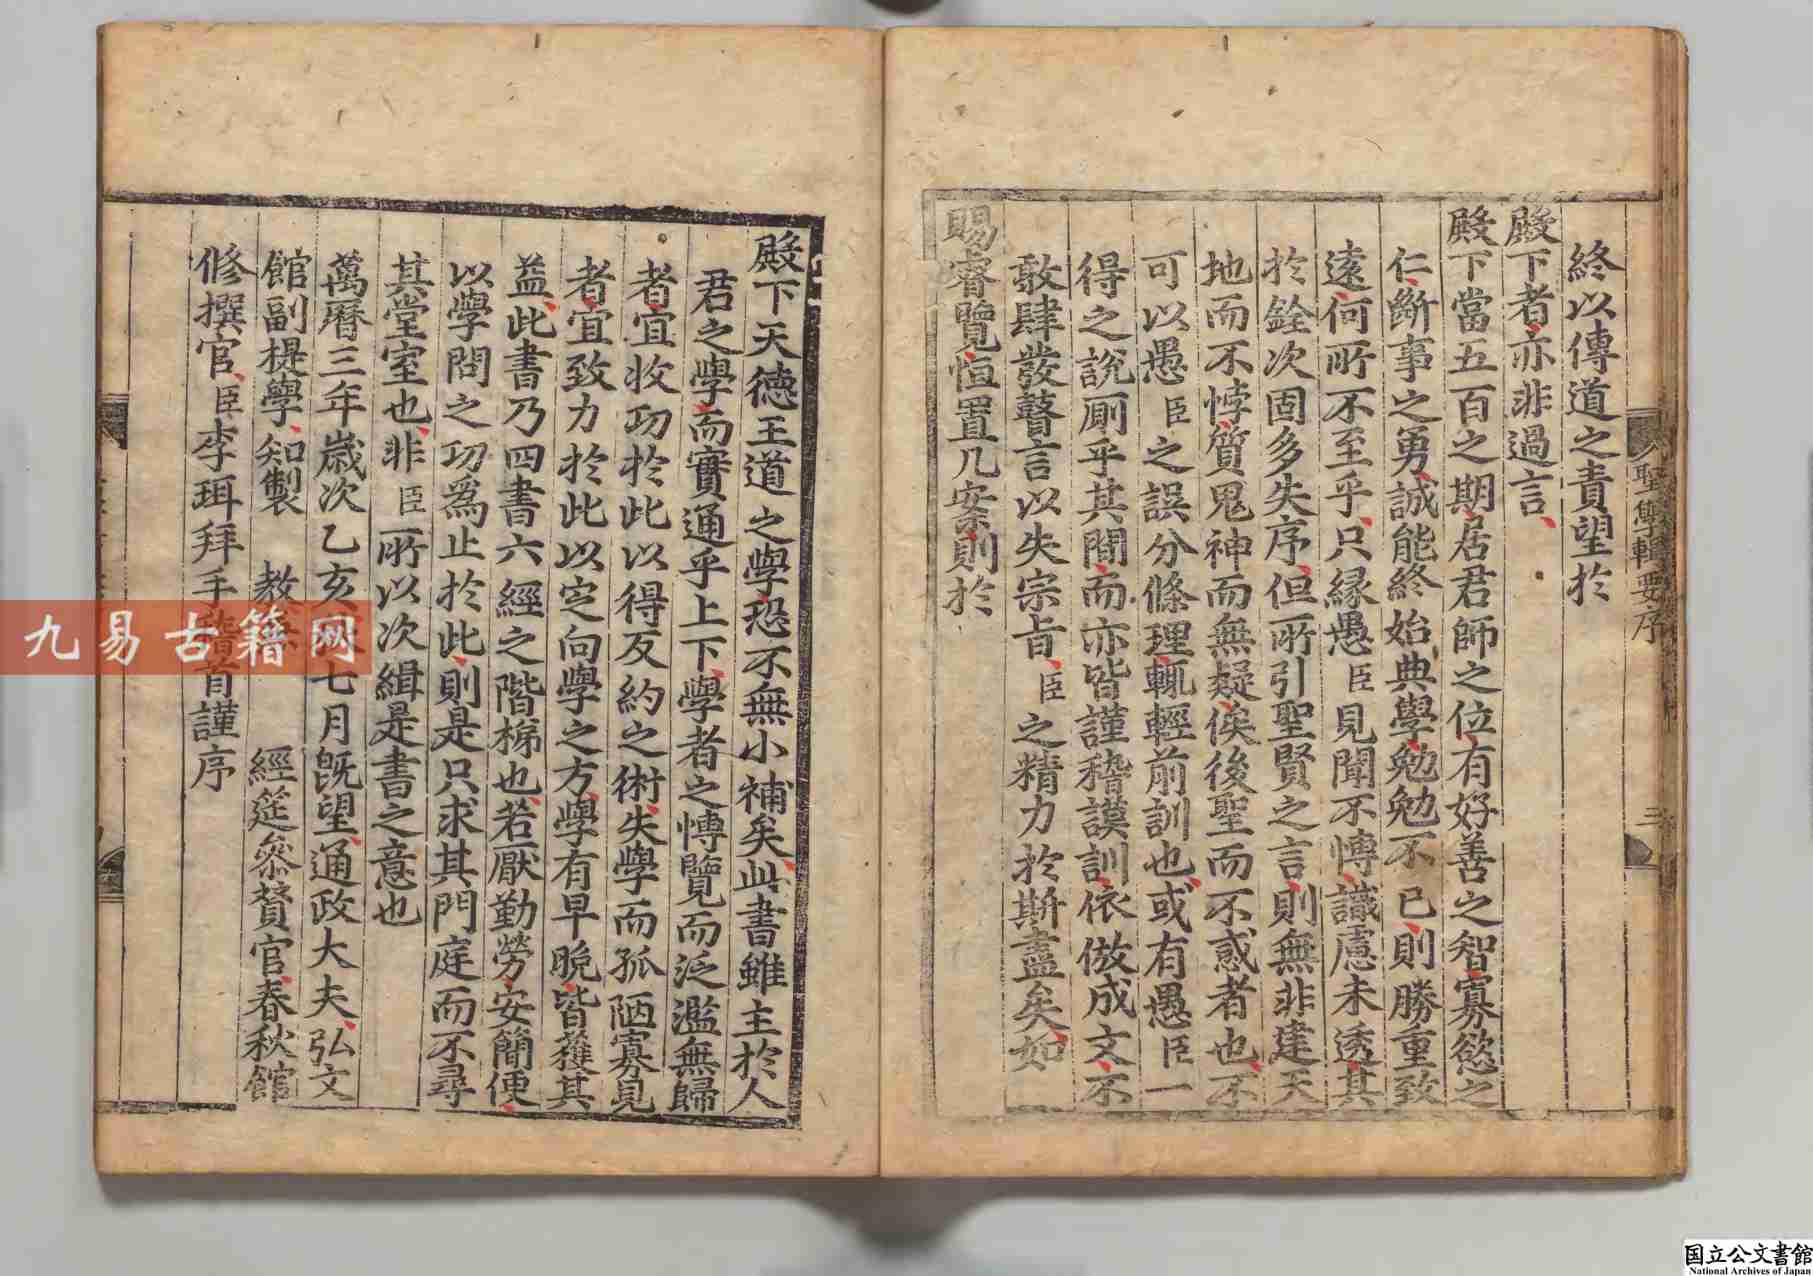 終以傳道之責望於
殿下者亦非過言
殿下當五百之期居君師之位有好善之智寡慾之
仁斷事之勇誠能終始典學勉勉不已則勝重致
遠何所不至乎只縁愚臣見聞不博識慮未透其
於銓次固多失序但所引聖賢之言則無非建天
地而不悖質鬼神而無疑俟後聖而不惑者也不
可以愚臣之誤分條理輒輕前訓也或有愚臣一
得之說厠乎其間而亦皆謹稽謨訓依倣成文不
敢肆發瞽言以失宗旨臣之精力於斯盡矣如
賜睿覽恒置几案則於
聖學輯要序
三
殿下天德王道之學恐不無小補矣此書雖主於人
君之學而實通乎上下學者之博覽而泛濫無歸
者宜收功於此以得反約之術失學而孤陋寡見
者宜致力於此以定向學之方學有早晩皆獲其
益此書乃四書六經之階梯也若厭勤勞安簡便
以學問之功爲止於此則是只求其門庭而不尋
其堂室也非臣所以次緝是書之意也
萬曆三年歲次乙亥七月旣望通政大夫弘文
館副提學知製教 經筵參贊官春秋館
修撰官臣李珥拜手稽首謹序
九易古籍网
国立公文書館
National Archives of Japan